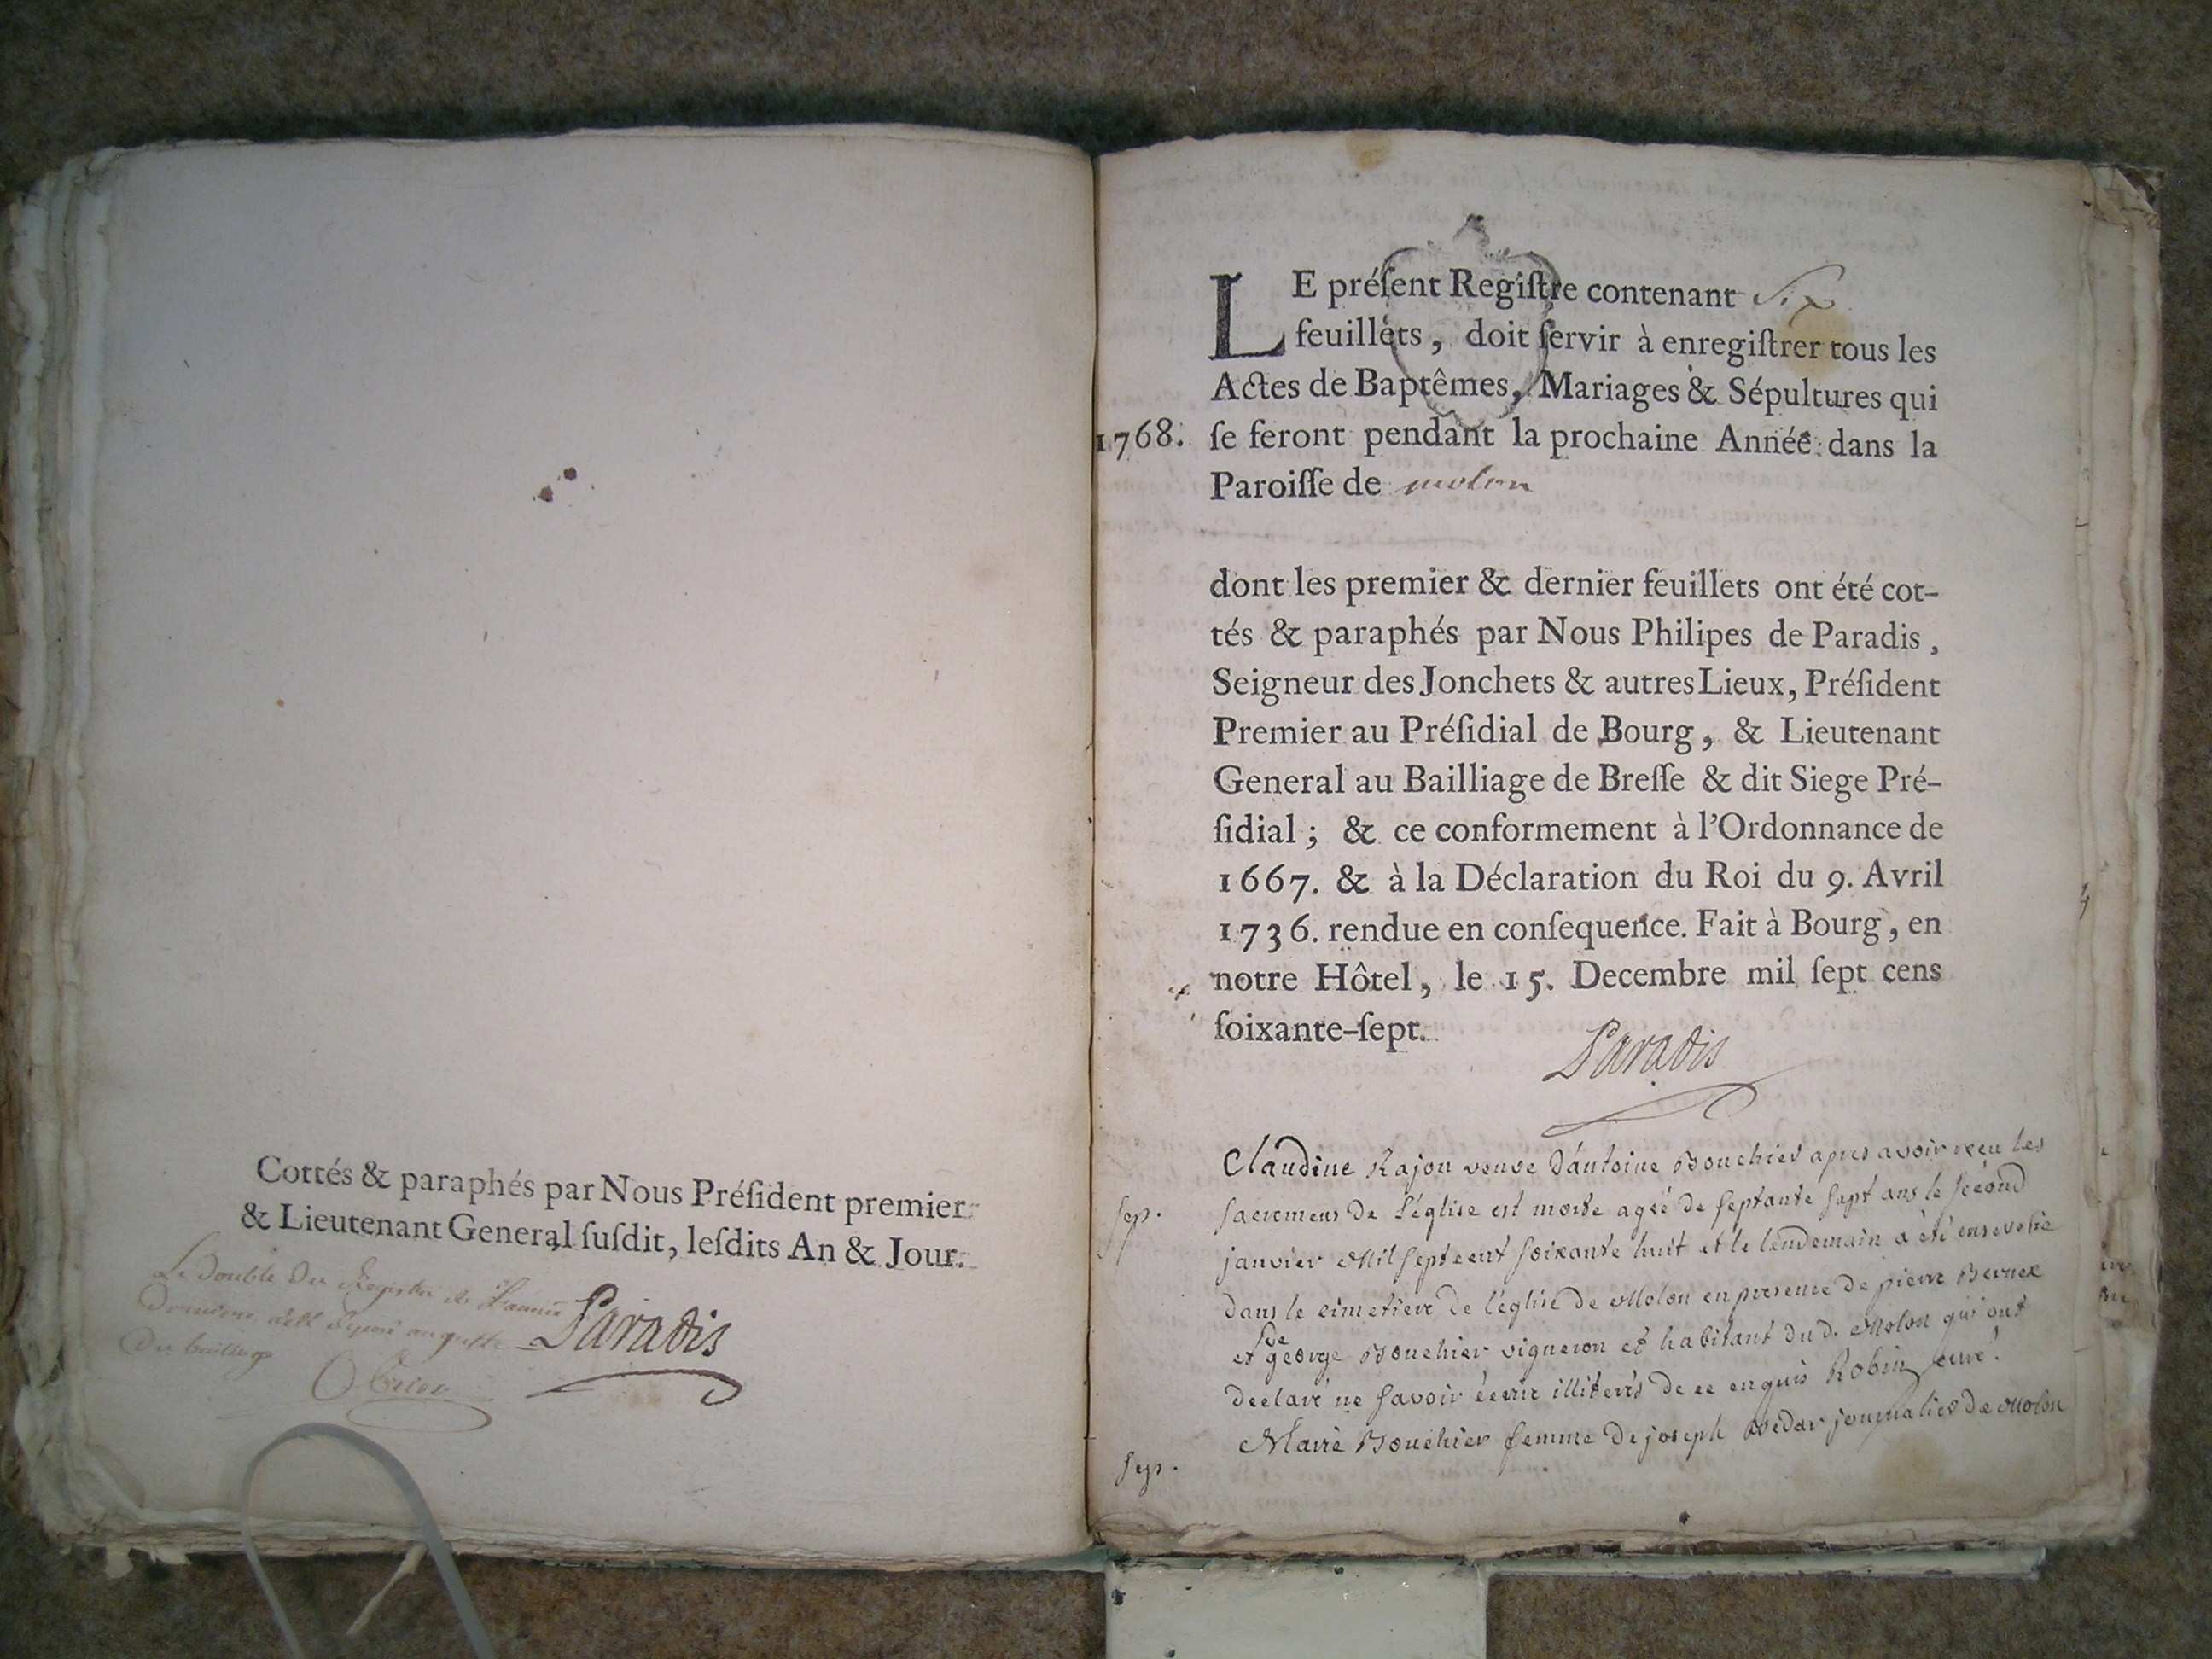 Cottés & paraphés par Nous Préſident premier
& Lieutenant General ſuſdit, leſdits An & Jour.
Le Double du Registre de L'année
du bailliage
Paradis
LE préſent Regiſtre contenant Six
feuillets, doit ſervir à enregiſtrer tous les
Actes de Baptêmes, Mariages & Sépultures qui
1768. ſe feront pendant la prochaine Année dans la
Paroiſſe de molon
dont les premier & dernier feuillets ont été cot-
tés & paraphés par Nous Philipes de Paradis,
Seigneur des Jonchets & autres Lieux, Préſident
Premier au Préſidial de Bourg, & Lieutenant
General au Bailliage de Breſſe & dit Siege Pré-
ſidial; & ce conformement à l'Ordonnance de
1667. & à la Déclaration du Roi du 9. Avril
1736. rendue en conſequence. Fait à Bourg, en
notre Hôtel, le 15. Decembre mil ſept cens
ſoixante-ſept.
Paradis
Claudine Rajon veuve d'antoine Bouchier apres avoir reçu les
sep. sacremens de l'église est morte agée de septante sept ans le sécond
janvier Mil sept cent soixante huit et le lendemain a été ensevelie
dans le cimetiere de l'église de Molon en presence de pierre Bernex
et de george Bouchier vigneron et habitant du d. Molon qui ont
declaré ne savoir écrire illiterés de ce enquis Robin curé.
sep. Marie Bouchier femme de joseph journalier de Molon